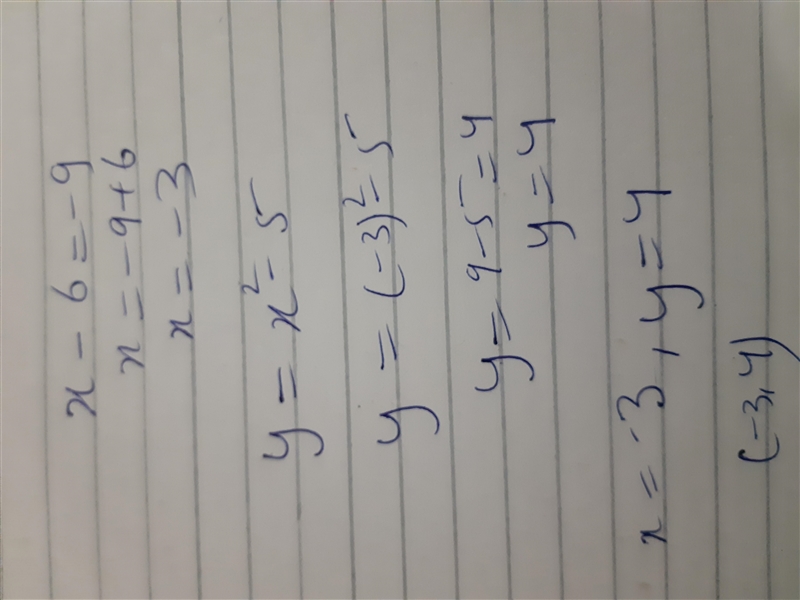 x - 6 = -9
x = -9 + 6
x = -3
y = x² - 5
y = (-3)² - 5
y = 9 - 5 = 4
y = 4
x = -3, y = 4
(-3, 4)